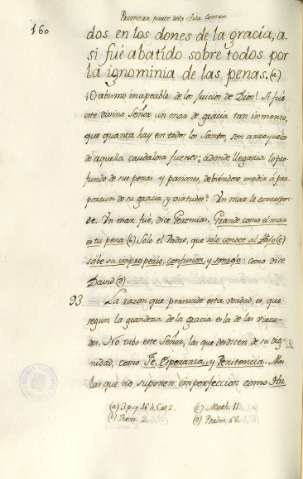 160
Primera parte
dos en los dones de la gracia, a-
si fué abatido sobre todos por
la ignominia de las penas. (a)
O abismo inapeable de los juicios de Dios! A fué
este divino Señor un mar de gracia tan inmenso,
que quanta hay en todos los Santos, son arroyuelos
de aquella caudalosa fuente; adonde llegaria lo pro-
fundo de sus penas y pasiones, debiendose medir á pro-
porcion de su gracia, y virtudes? Un mar le correspon-
de. Un mar fué, dice Jeremias. Grande como el mar
es tu pena (b) Solo el Padre, que solo conoce al Hijo (c)
sabe su improperio, confusion, y como dice
David (d)
93 La razon que persuade esta verdad, es, que
segun la grandeza de la gracia es la de las virtu-
des. No tubo este Señor, las que desdicen de su dig-
nidad, como Fe, Esperanza, y Penitencia. Mas
las que no suponen imperfeccion como
(a) D. p. q. 46
(b) Thren. 2.
(c) Math. 11.
(d) Psalm. 68.